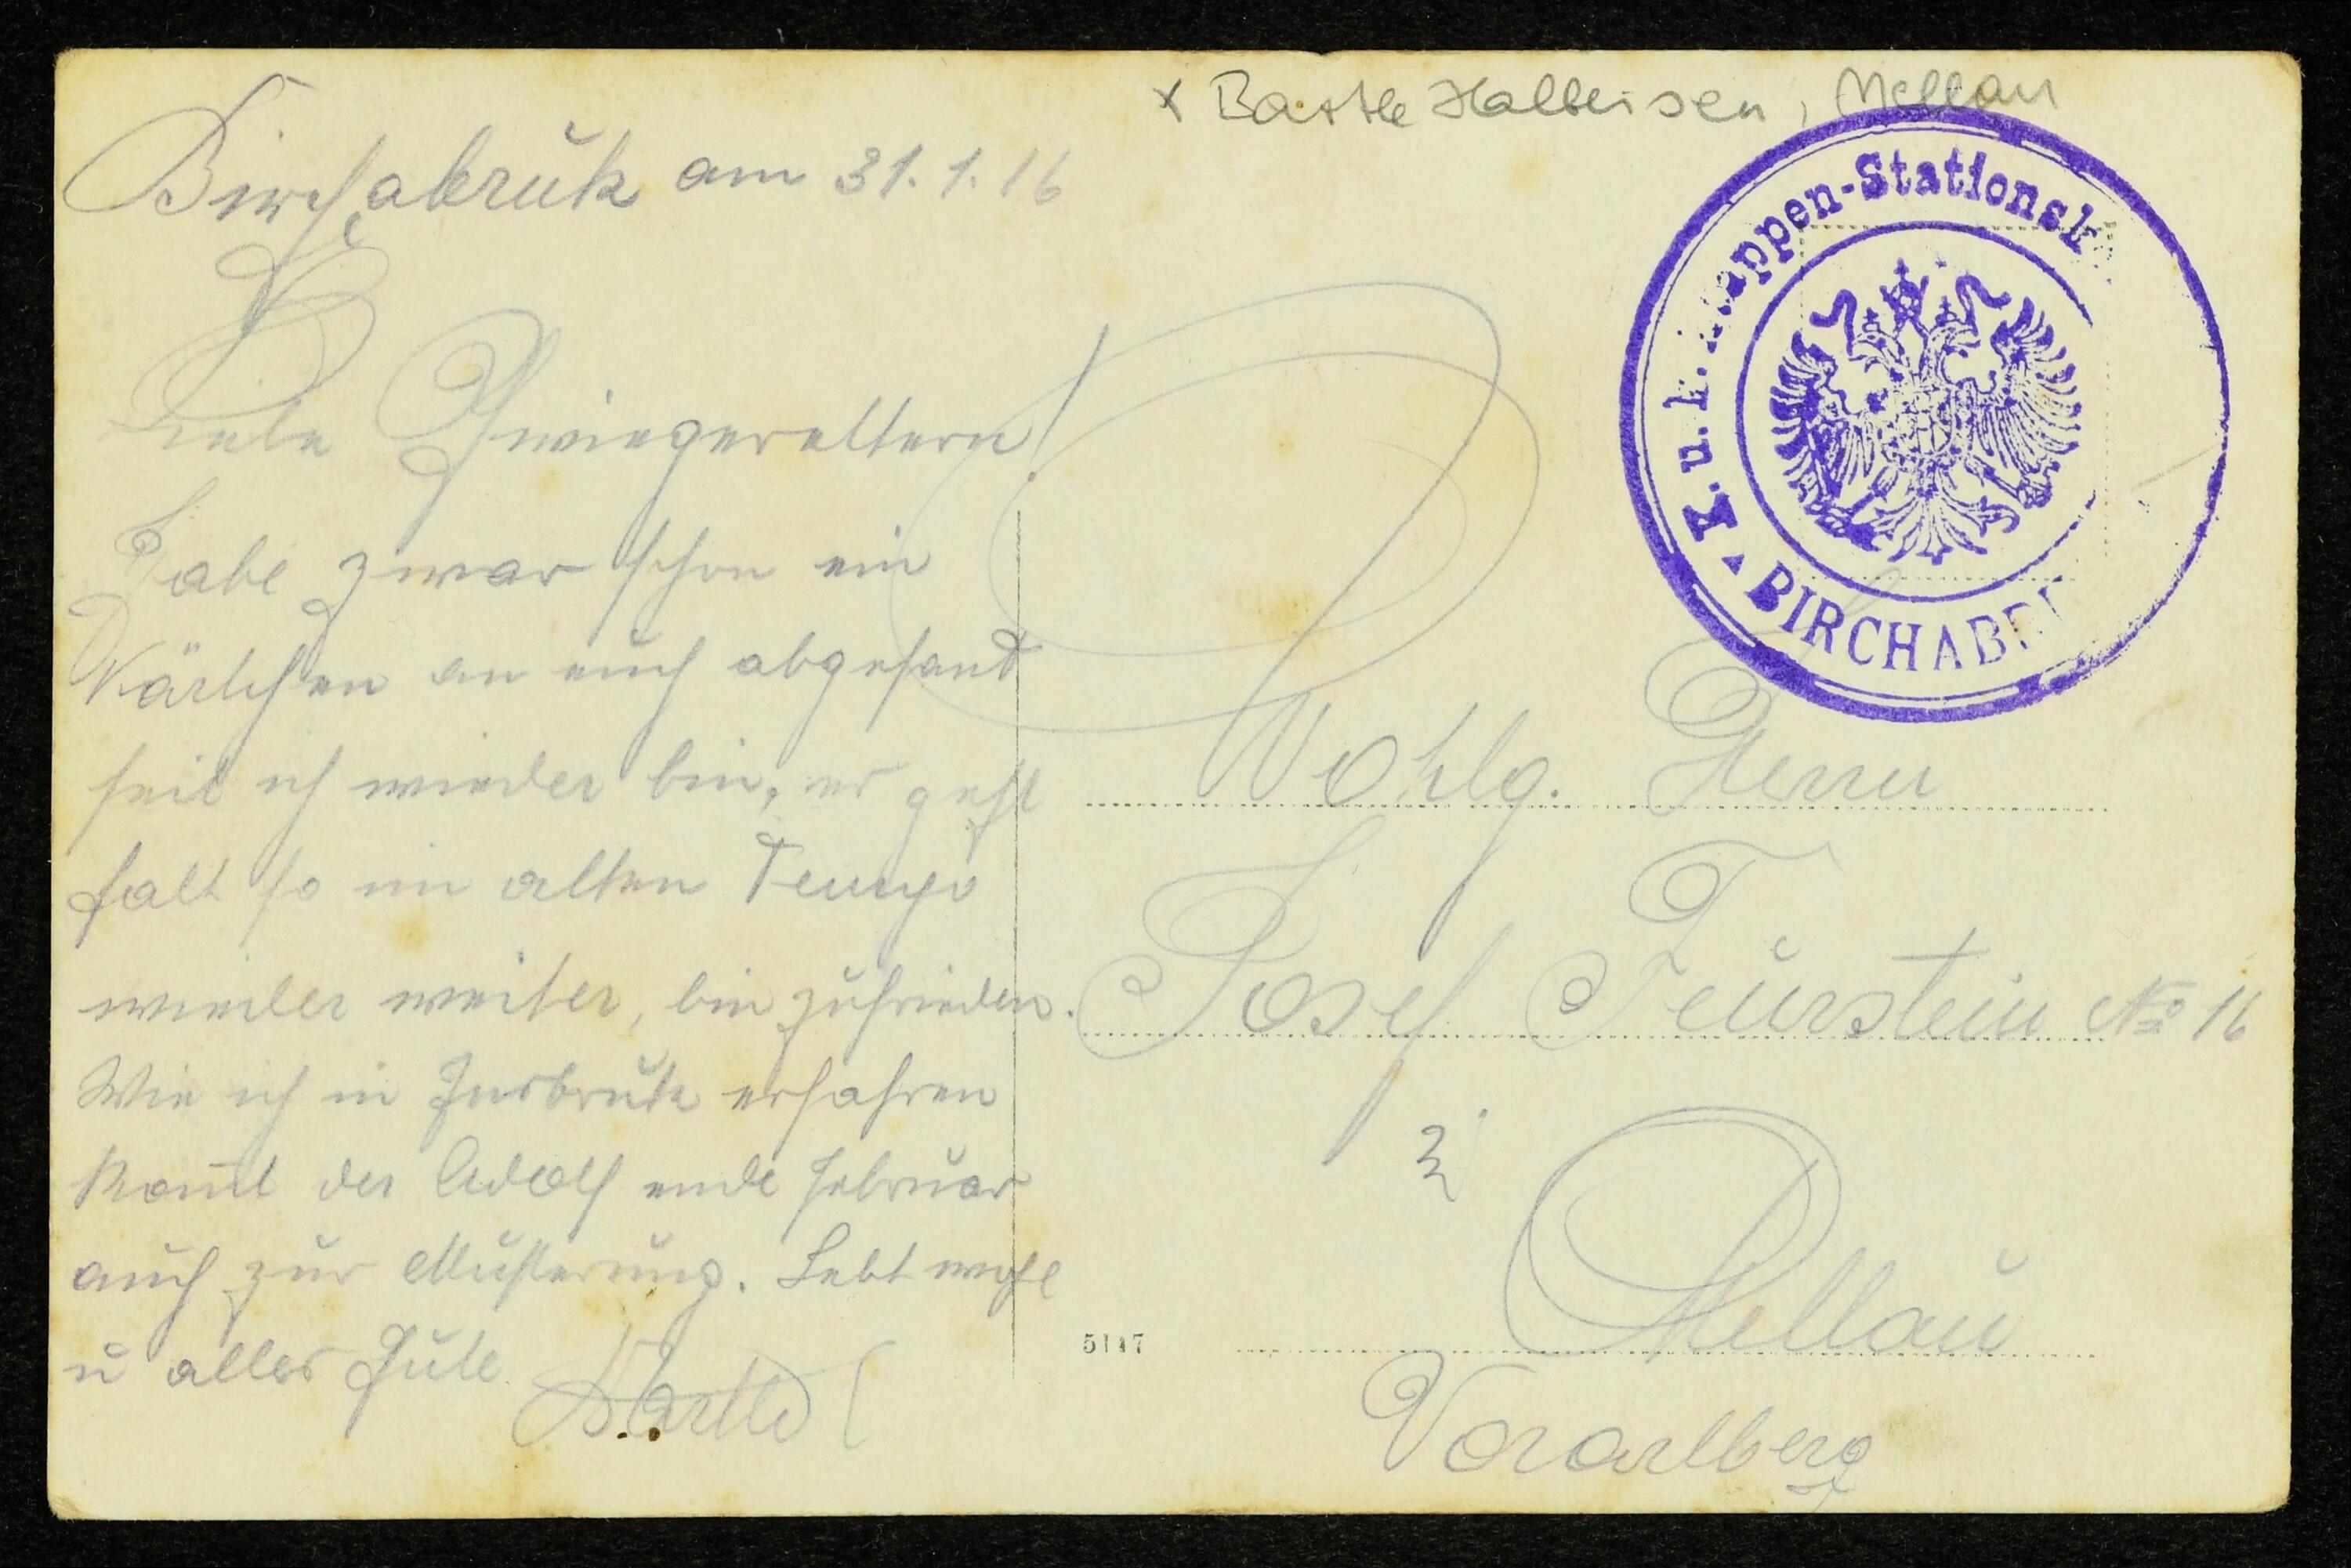 x Bartle Halbeisen, Mellau
Birchabruk am 31.1.16
Liebe Schwiegereltern!
Habe zwar schon ein
Kärtchen an euch abgesand
seit ich wieder bin, es geht
halt so im alten Tempo
wieder weiter, bin zufrieden.
Wie ich in Insbruk erfahren
komt der Adolf ende Februar
auch zur Musterung. Lebt wohl
u alles Gute
Bartle
K.u.k. Etappen-Stationsk
BIRCHABR
Wohlg. Herrn
Josef Feurstein No 16
Mellau
Vorarlberg
5117